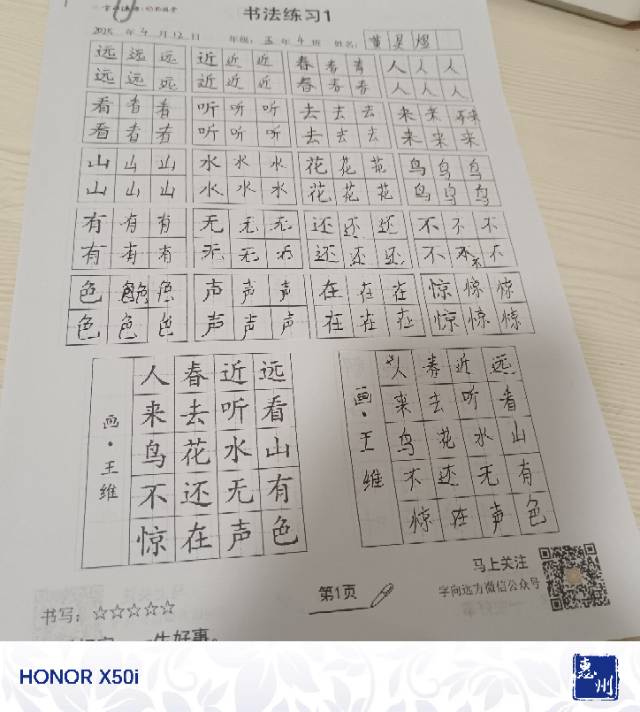 书法练习1
2025 年 4 月 12 日 年级: 五 年 4 班 姓名:
远 远 远 近 近 近 春 春 春 人 人 人
远 远 远 近 近 近 春 春 春 人 人 人
看 看 看 听 听 听 去 去 去 来 来 来
看 看 看 听 听 听 去 去 去 来 来 来
山 山 山 水 水 水 花 花 花 鸟 鸟 鸟
山 山 山 水 水 水 花 花 花 鸟 鸟 鸟
有 有 有 无 无 无 还 还 还 不 不 不
有 有 有 无 无 无 还 还 还 不 不 不
色 色 色 声 声 声 在 在 在 惊 惊 惊
色 色 色 声 声 声 在 在 在 惊 惊 惊
画·王维
远看山有色
近听水无声
春去花还在
人来鸟不惊
画·王维
远看山有色
近听水无声
春去花还在
人来鸟不惊
马上关注
字向远方微信公众号
第1页
书写: ☆☆☆☆☆
生好事。
HONOR X50i
惠州